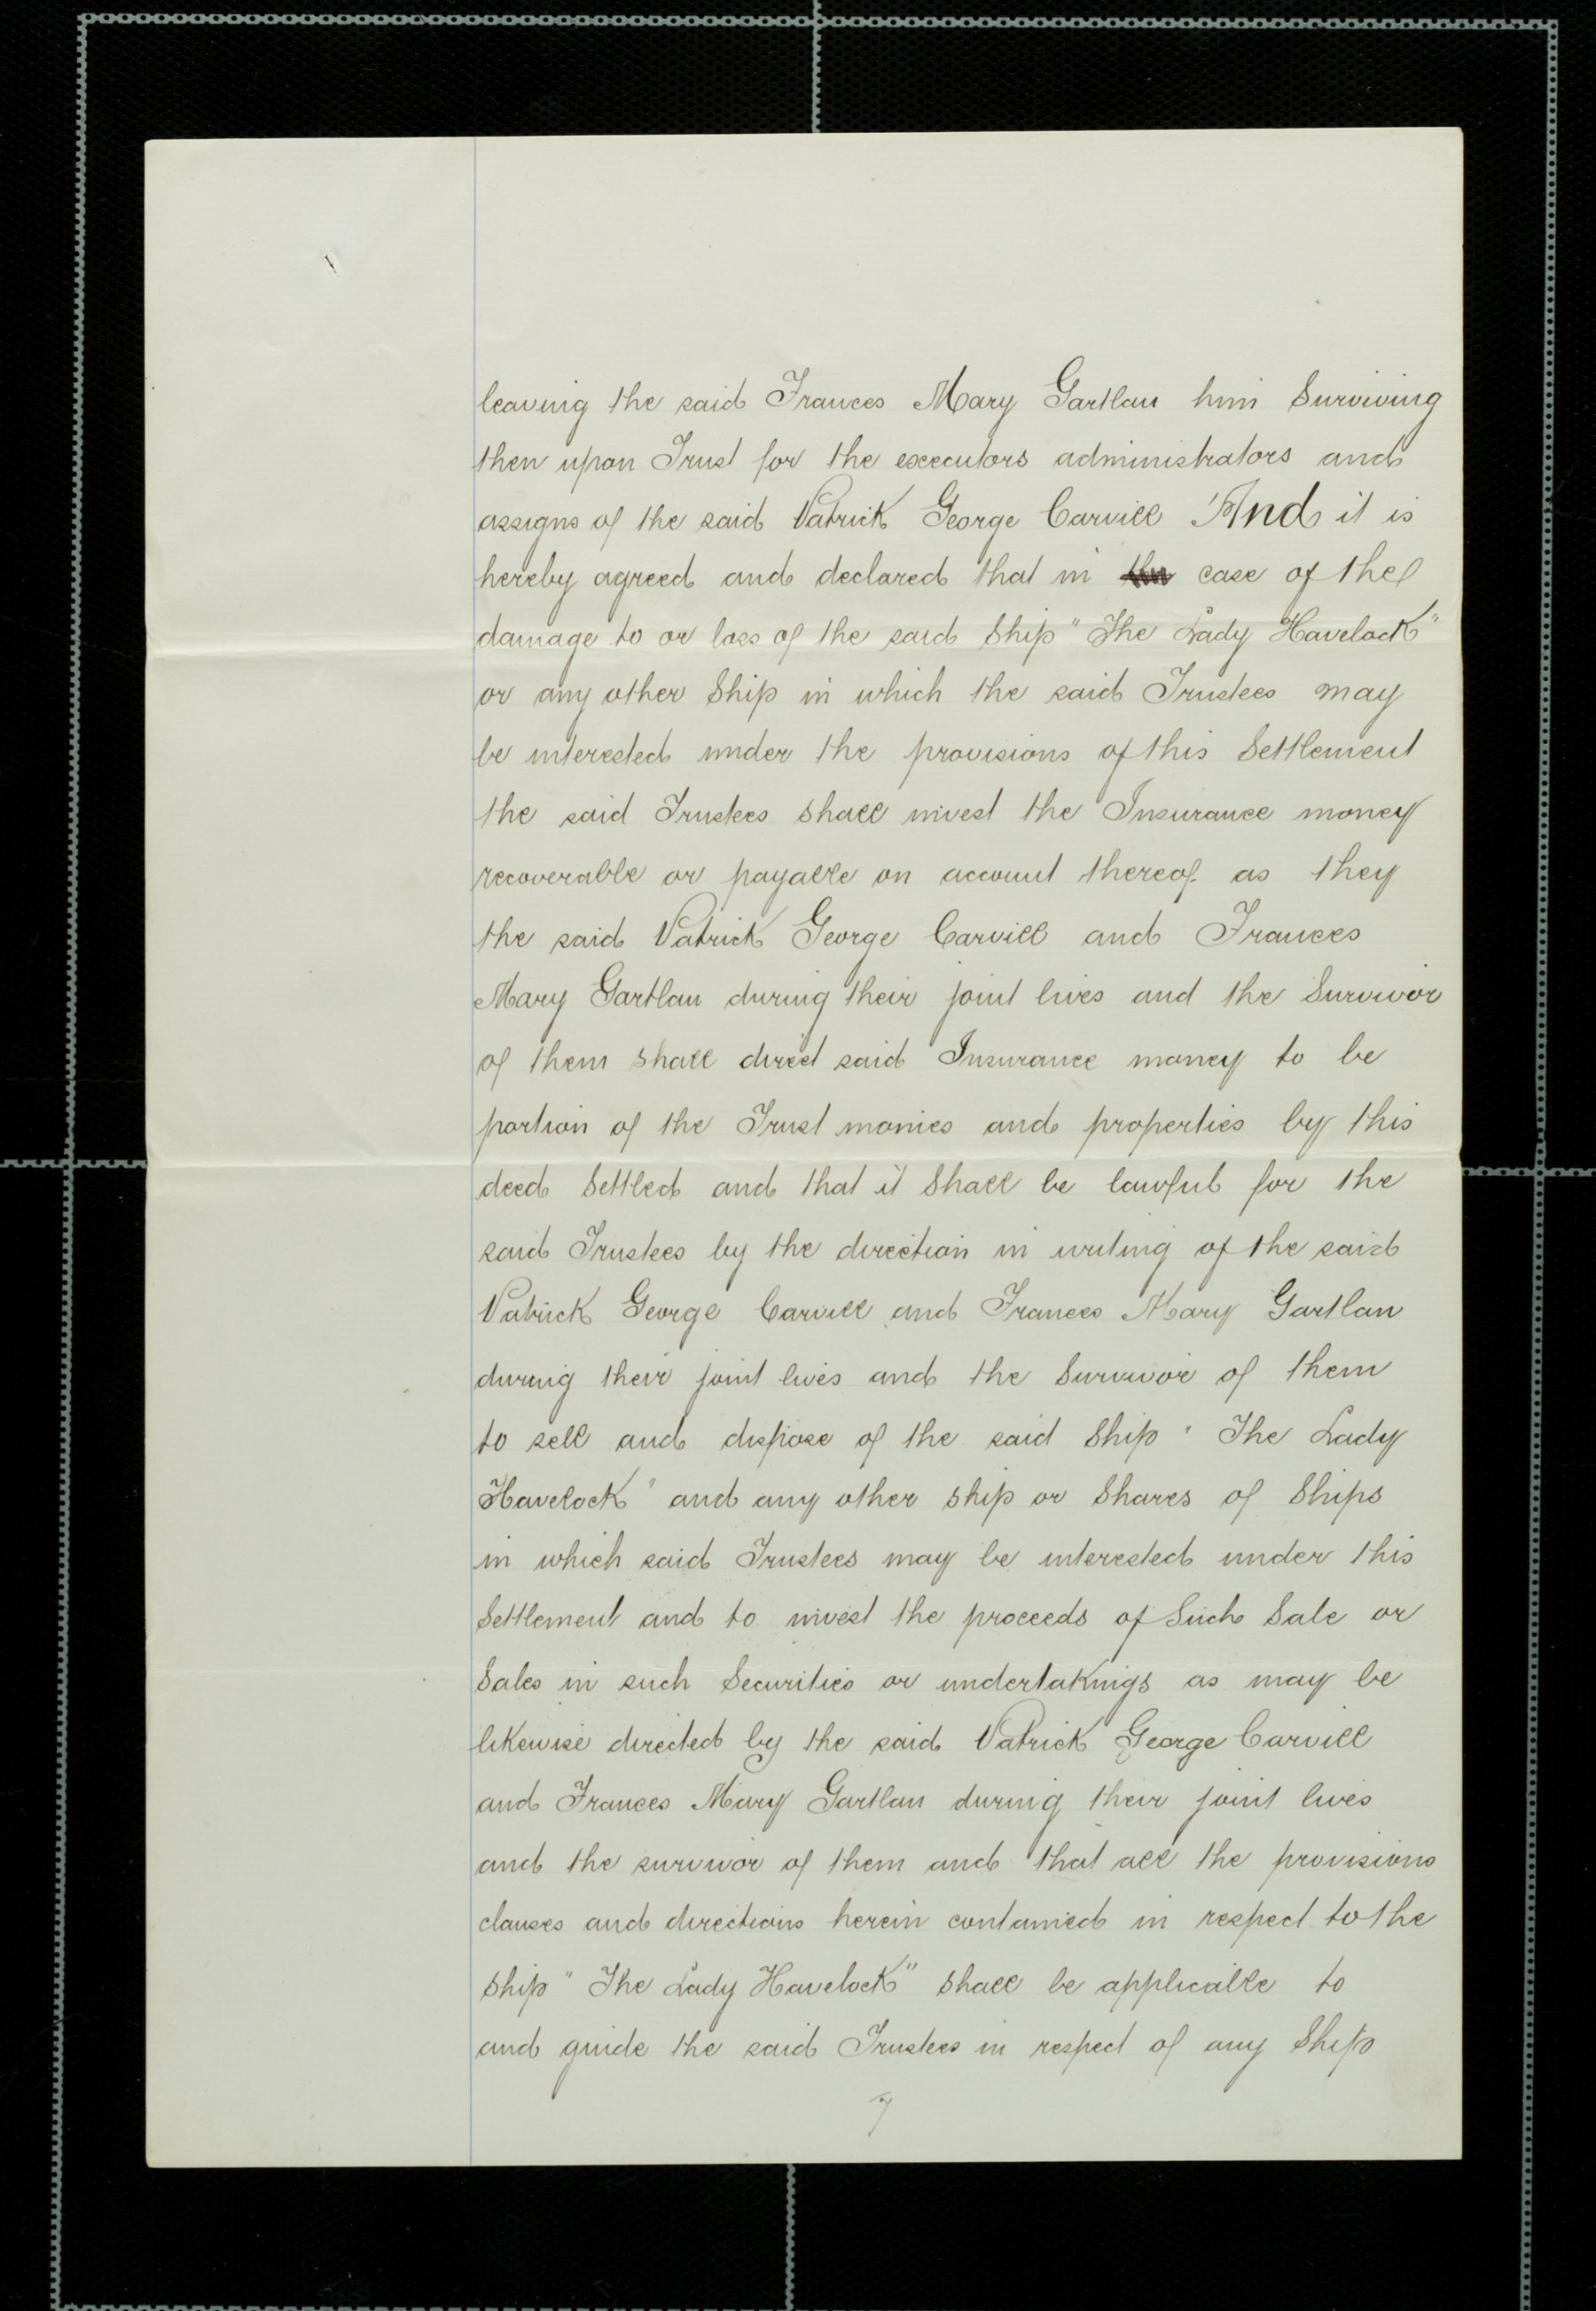 leaving the said Frances Mary Gartlan him Surviving
then upon Trust for the executors administrators and
assigns of the said Patrick George Carvill And it is
hereby agreed and declared that in case of the
damage to or loss of the said Ship "The Lady Havelock"
or any other Ship in which the said Trustees may
be interested under the provisions of this Settlement
the said Trustees shall invest the Insurance money
recoverable or payable on account thereof as they
the said Patrick George Carvill and Frances
Mary Gartlan during their joint lives and the Survivor
of them shall direct said Insurance money to be
portion of the Trust monies and properties by this
deed Settled and that it Shall be lawful for the
said Trustees by the direction in writing of the said
Patrick George Carvill and Frances Mary Gartlan
during their joint lives and the Survivor of them
to sell and dispose of the said Ship "The Lady
Havelock" and any other ship or Shares of Ships
in which said Trustees may be interested under this
Settlement and to invest the proceeds of Such Sale or
Sales in such Securities or undertakings as may be
likewise directed by the said Patrick George Carvill
and Frances Mary Gartlan during their joint lives
and the survivor of them and that all the provisions
clauses and directions herein contained in respect to the
Ship "The Lady Havelock" shall be applicable to
and guide the said Trustees in respect of any Ship
7